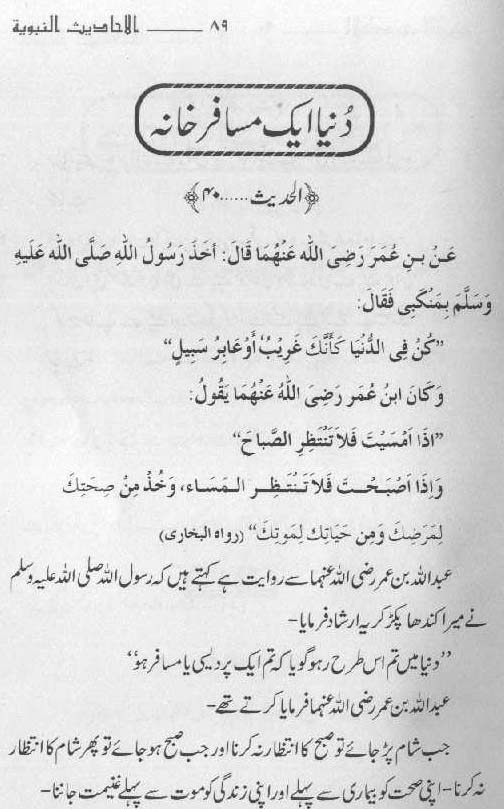 الاحادیث النبویة ——— ۸۹
دُنیا ایک مسافر خانہ
﴿الحدیث......۴۰﴾
عَنْ بنِ عُمَرَ رَضِیَ الله عَنْهُمَا قَالَ: أخَذَ رَسُولُ اللهِ صَلَّی الله عَلَیْهِ
وَسَلَّمَ بِمَنْكَبِی فَقَالَ:
”كُنْ فِی الدُّنْیَا كَأَنَّكَ غَرِیْبٌ أوْعَابِرُ سَبِیلٍ“
وَكَانَ ابنُ عُمَر رَضِیَ اللهُ عَنْهُمَا یَقُولُ:
”اذَا اَمْسَیْتَ فَلاَ تَنْتَظِرِ الصَّباحَ“
وَاِذَا اَصْبَحْتَ فَلاَ تَنْتَظِر المَسَاء، وَخُذْ مِنْ صِحَتِكَ
لِمَرَضِكَ وَمِن حَیَاتِك لِمَوتِكَ“ (رواه البخاری)
عبداللہ بن عمر رضی اللہ عنہما سے روایت ہے کہتے ہیں کہ رسول اللہ صلی اللہ علیہ وسلم
نے میرا کندھا پکڑ کر یہ ارشاد فرمایا-
”دنیا میں تم اس طرح رہو گویا کہ تم ایک پردیسی یا مسافر ہو“
عبداللہ بن عمر رضی اللہ عنہما فرمایا کرتے تھے-
جب شام پڑ جائے تو صبح کا انتظار نہ کرنا اور جب صبح ہو جائے تو پھر شام کا انتظار
نہ کرنا- اپنی صحت کو بیماری سے پہلے اور اپنی زندگی کو موت سے پہلے غنیمت جاننا-